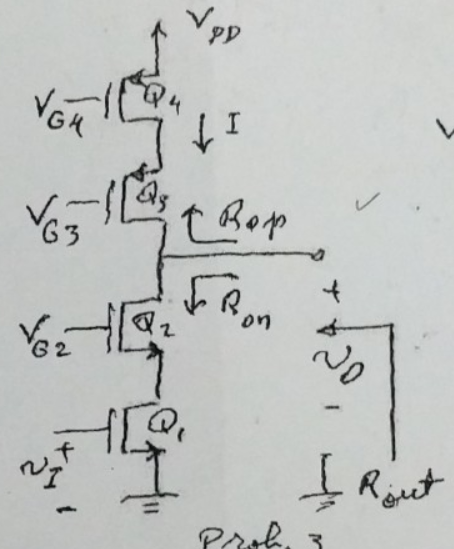 V_DD
V_G4
Q_4
I
V_G3
Q_3
R_op
R_on
V_G2
Q_2
+
v_O
-
Q_1
v_I
+
-
R_out
Prob. 3